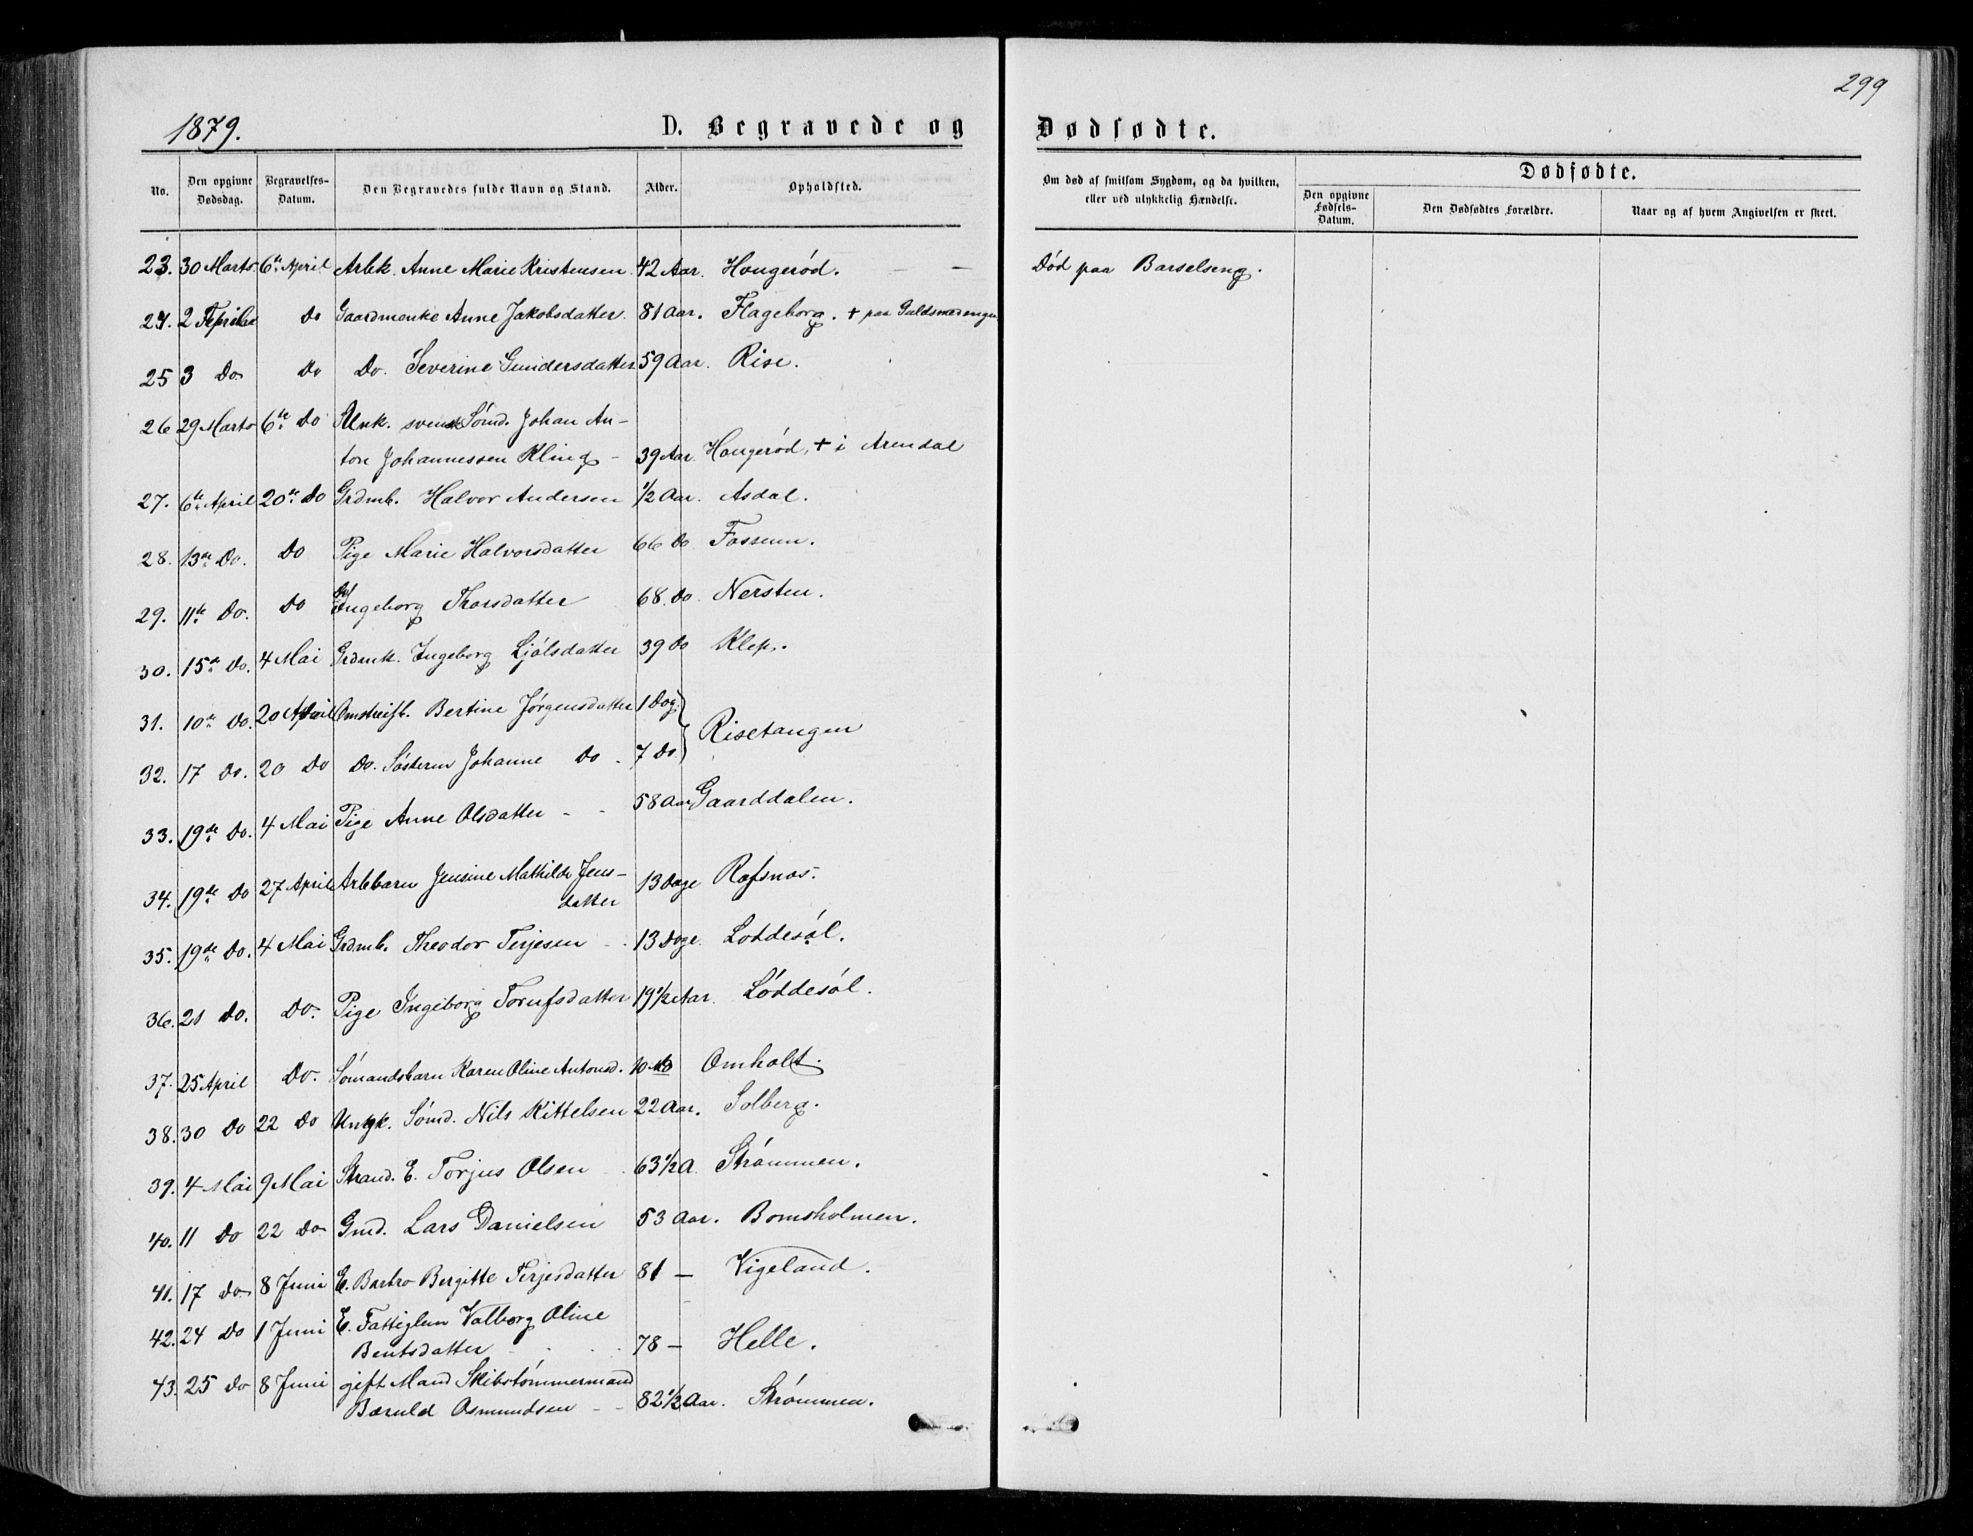 299
1879. D. Begravede og Dødfødte.
No. Den opgivne Dødsdag. Begravelses-Datum. Den Begravedes fulde Navn og Stand. Alder. Opholdsted. Om død af smitsom Sygdom, og da hvilken, eller ved ulykkelig Hændelse. Dødfødte.
Den opgivne Fødsels-Datum. Den Dødfødtes Forældre. Naar og af hvem Angivelsen er skeet.
23. 30 Marts 6te April Arbk. Anne Marie Kristensen 42 Aar. Hougerød. Død paa Barselseng.
24. 2 April Do Gaardmenke Anne Jakobsdatter. 81 Aar. Flageborg. + paa Guldsmedengen
25 3 Do Do Do. Severine Gundersdatter 59 Aar. Rise.
26 29 Marts 6te Do Unk. svensk Sømd. Johan An-
ton Johannessen Kling 39 Aar. Hougerød, + i Arendal
27. 6te April 20de Do Grdmb. Halvor Andersen 1/2 Aar. Asdal.
28. 13de Do. Do Pige Marie Halvorsdatter 66 Do Fossum.
29. 11te Do. Do Ingeborg Thorsdatter 68. Do Nersten.
30. 15de Do. 4 Mai Grdmk. Ingeborg Ljølsdatter 39 Do Klep.
31. 10de Do. 20 April Omstreifb. Bertine Jørgensdatter 1 Dag Risetangen
32. 17 Do. 20 Do Do. Søsteren Johanne Do. 7 Do
33. 19de Do. 4 Mai Pige Anne Olsdatter 58 Aar Gaarddalen.
34. 19de Do 27 April Arbbarn Jensine Mathilde Jens-
datter 13 Dage Rafsnas.
35. 19de Do. 4 Mai Grdmb. Theodor Terjesen 13 Dage. Løddesøl.
36. 21 Do. Do. Pige Ingeborg Torufsdatter 19 1/2 Aar. Løddesøl.
37. 25 April Do. Sømandsbarn Karen Oline Antonsd. 10 Omholt.
38. 30 Do 22 Do Ungk. Sømd. Nils Kittelsen 22 Aar. Solberg.
39. 4 Mai 9 Mai Strand. E. Torjus Olsen 63 1/2 A. Strømmen.
40. 11 Do 22 Do Gmd. Lars Danielsen 53 Aar. Bomsholmen.
41. 17 Do 8 Juni E. Barbro Bergitte Terjesdatter 81 — Vigeland.
42. 24 Do 1 Juni E. Fattiglem Valborg Oline
Bentsdatter 78 — Helle.
43. 25 Do 8 Juni gift Mand Skibstømmermand
Bæruld Osmundsen 82 1/2 Aar. Strømmen.